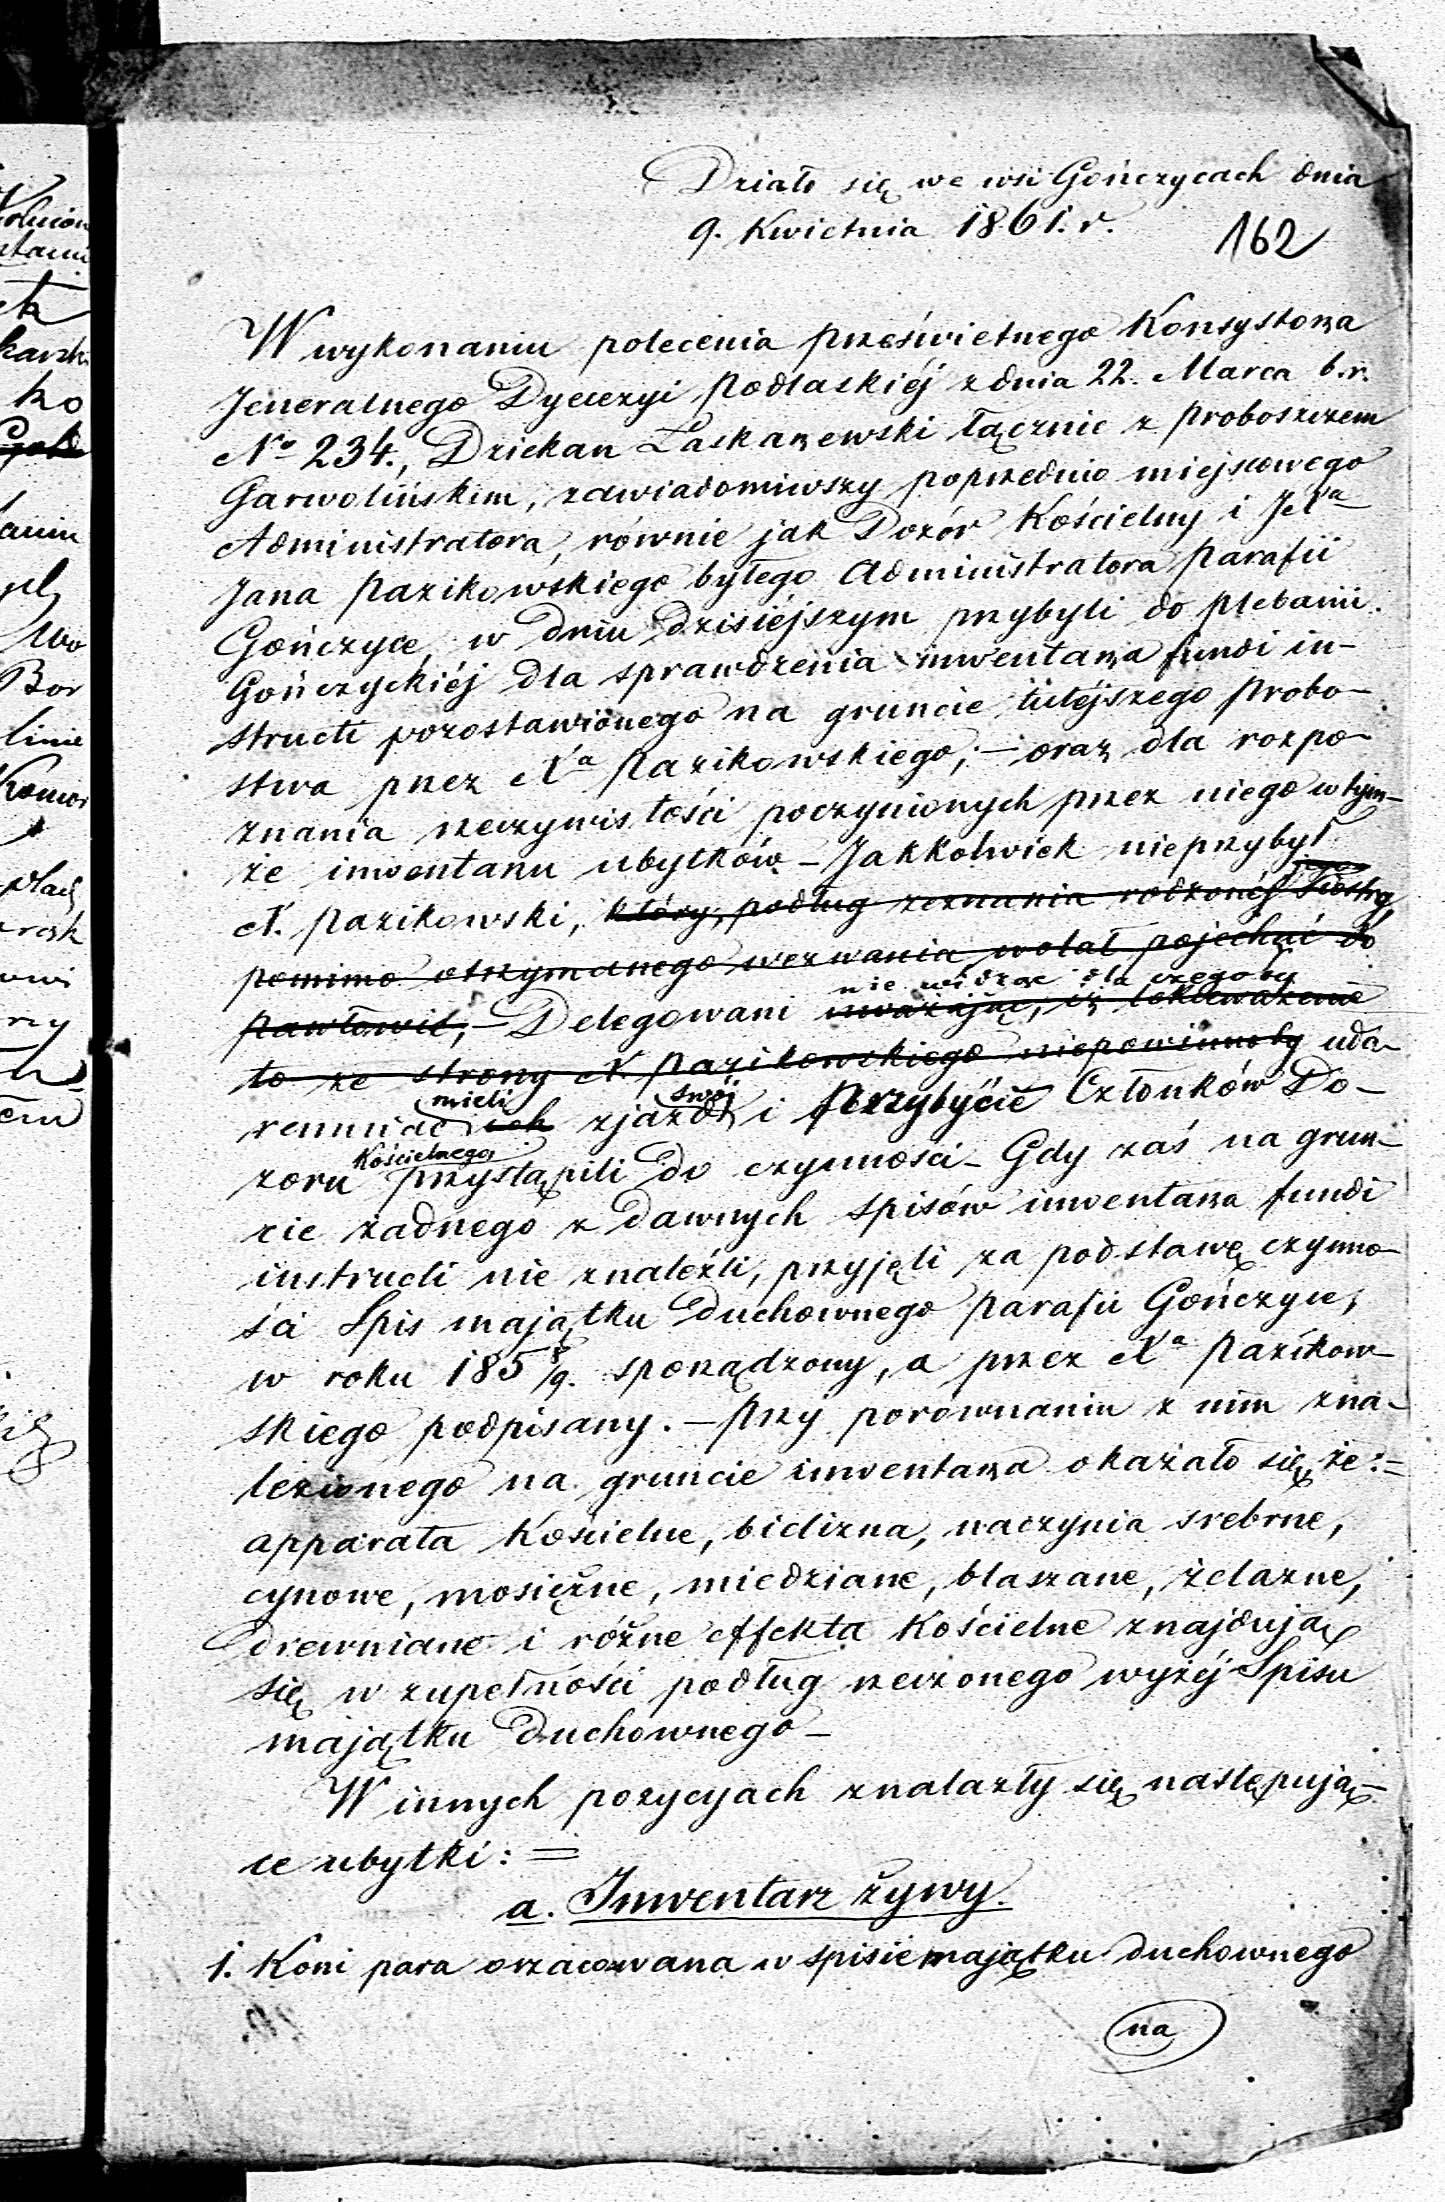 Działo się we wsi Gończycach dnia
9. Kwietnia 1861. r.
162
W wykonaniu polecenia Prześwietnego Konsystorza
Jeneralnego Dyecezyi Podlaskiéj z dnia 22. Marca b.r.
No 234., Dziekan Łaskarzewski łącznie z Proboszczem
Garwolińskim, zawiadomiwszy poprzednio miejscowego
Administratora, równie jak Dozór Kościelny i
Jana Pazikowskiego byłego Administratora Parafii
Gończyce, w dniu dzisiéjszym przybyli do Plebanii
Gończyckiéj dla sprawdzenia inwentarza fundi in-
structi pozostawionego na gruncie tutéjszego Probo-
stwa przez Xa Pazikowskiego; — oraz dla rozpo-
znania rzeczywistości poczynionych przez niego w tym-
że inwentarzu ubytków — Jakkolwiek nieprzybył
X. Pazikowski, który, podług zeznania rodzonéj Siostry,
pomimo otrzymanego wezwania wolał pojechać do
nie widząc dla czegoby
Delegowani uważając, iż lekceważenie
to ze strony X. Pazikowskiego niepowinnoby uda-
mieli swój
remniać ich zjazd i przybycie Członków Do-
Kościelnego
zoru przystąpili do czynności — Gdy zaś na grun-
cie żadnego z dawnych spisów inwentarza fundi
instructi nie znaleźli, przyjęli za podstawę czynno-
ści Spis majątku Duchownego Parafii Gończyce,
w roku 185 8/9. sporządzony, a przez Xa Pazikow-
skiego podpisany. — Przy porównaniu z nim zna-
lezionego na gruncie inwentarza okazało się, że: =
apparata Kościelne, bielizna, naczynia srebrne,
cynowe, mosiężne, miedziane, blaszane, żelazne,
drewniane i różne effekta Kościelne znajdują
się w zupełności podług rzeczonego wyżéj Spisu
majątku Duchownego —
W innych pozycyach znalazły się następują-
ce ubytki: =
a. Inwentarz żywy.
1. Koni para oszacowana w spisie majątku duchownego
na